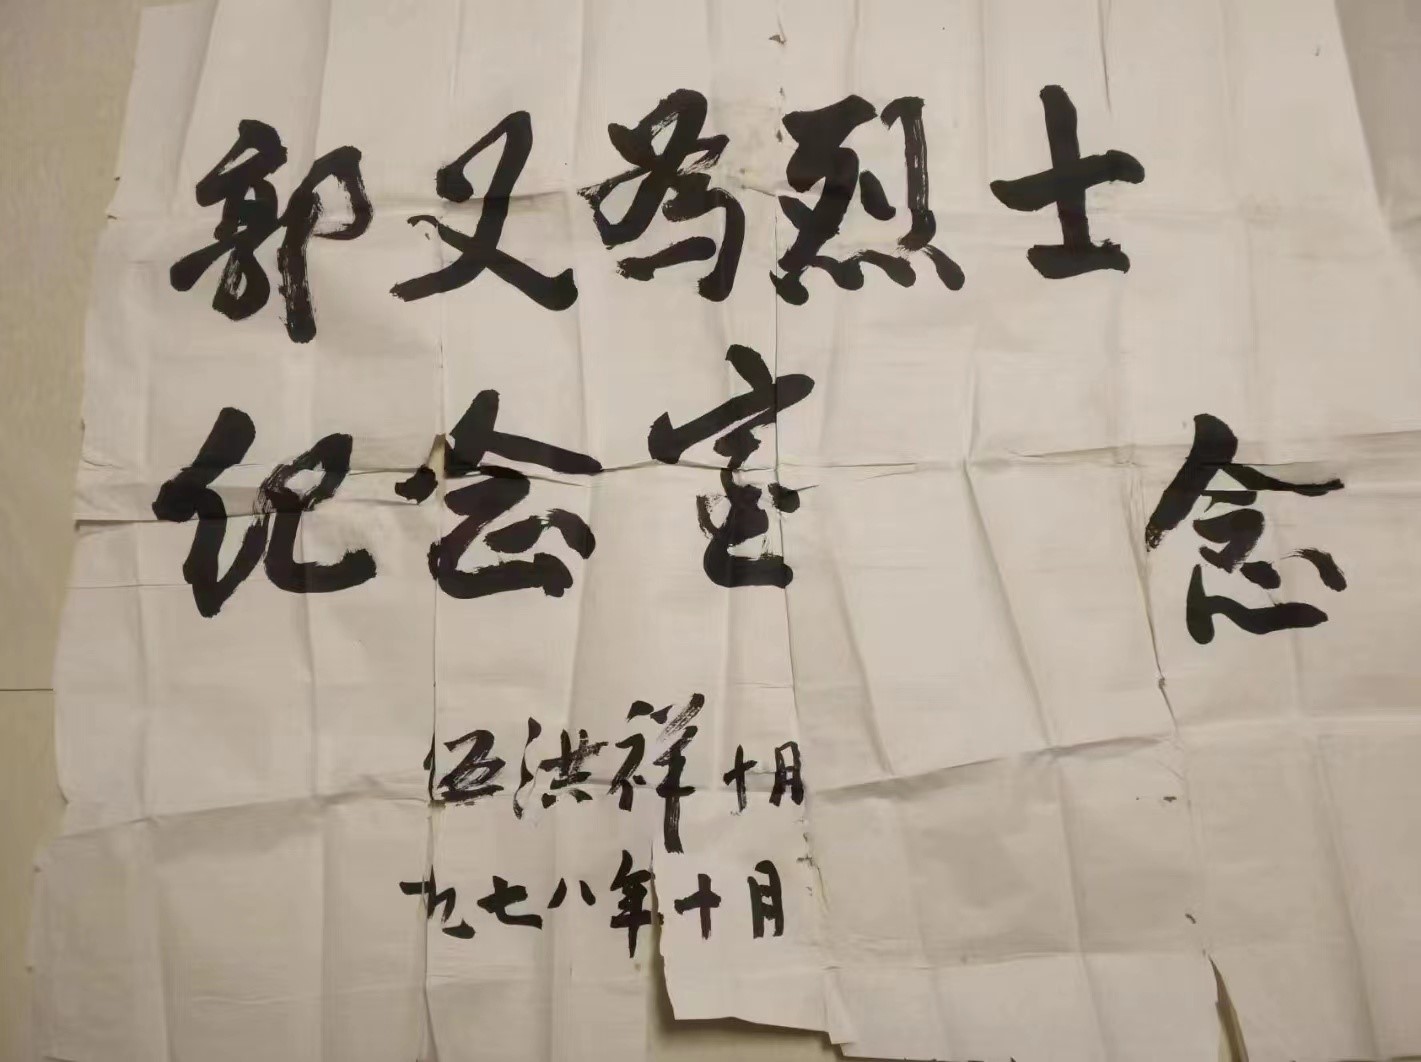 郭又為烈士
纪会室 念
伍洪祥 十月
九七八年十月